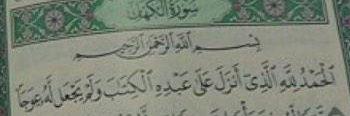 سُورَةُ الْكَهْفِ
بِسْمِ اللَّهِ الرَّحْمَٰنِ الرَّحِيمِ
الْحَمْدُ لِلَّهِ الَّذِي أَنزَلَ عَلَىٰ عَبْدِهِ الْكِتَٰبَ وَلَمْ يَجْعَل لَّهُ عِوَجَا